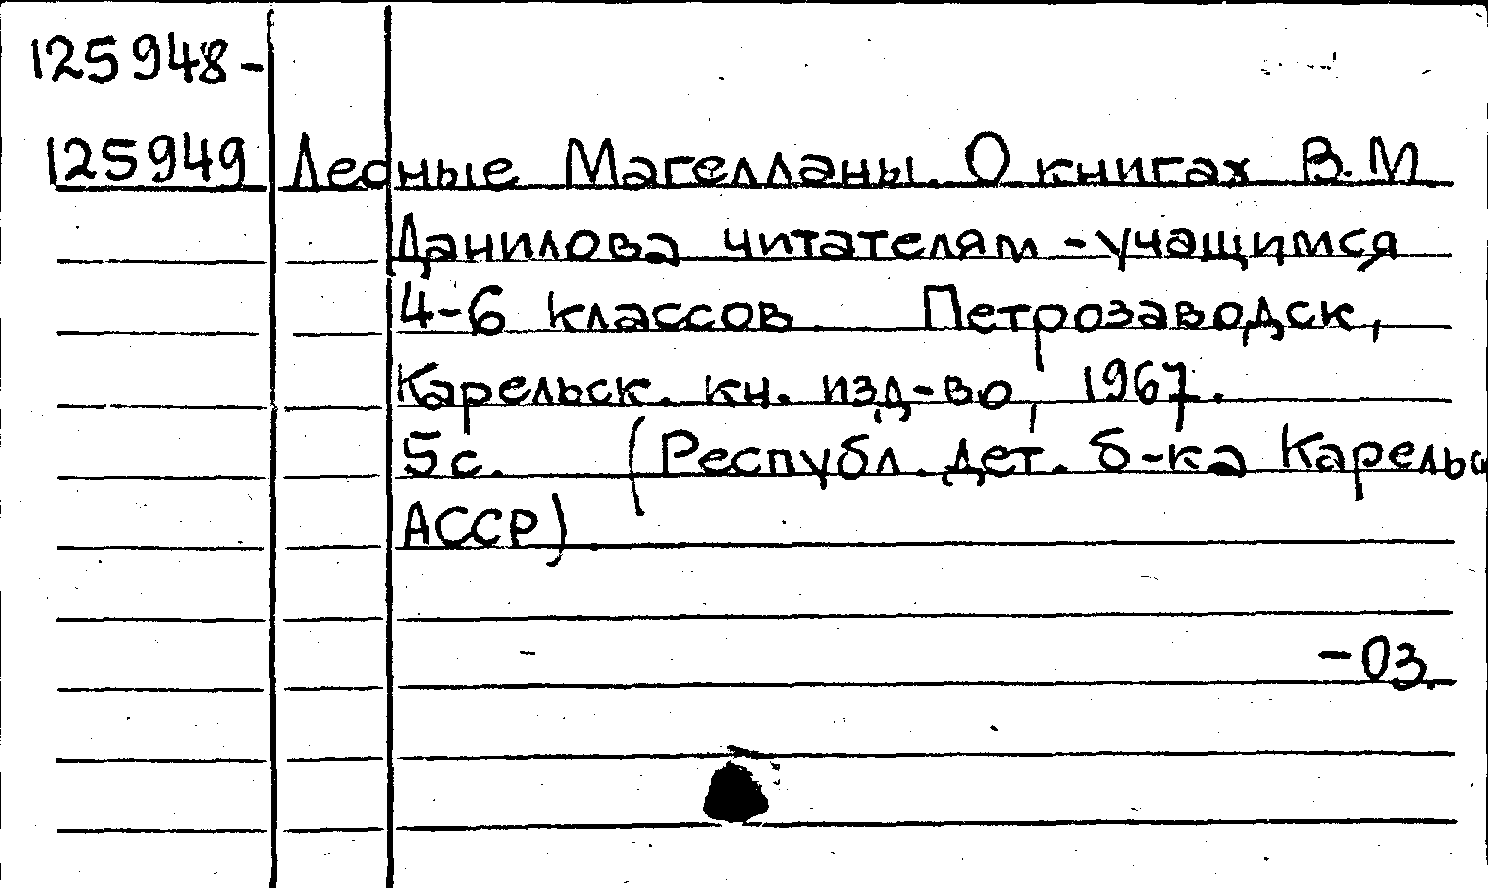 125948-
125949 Лесные Магелланы. О книгах В.М
Данилова читателям-учащимся
4-6 классов. Петрозаводск,
Карельск. кн. изд-во, 1967.
5с. (Республ. дет. б-ка Карельс
АССР).
-03.